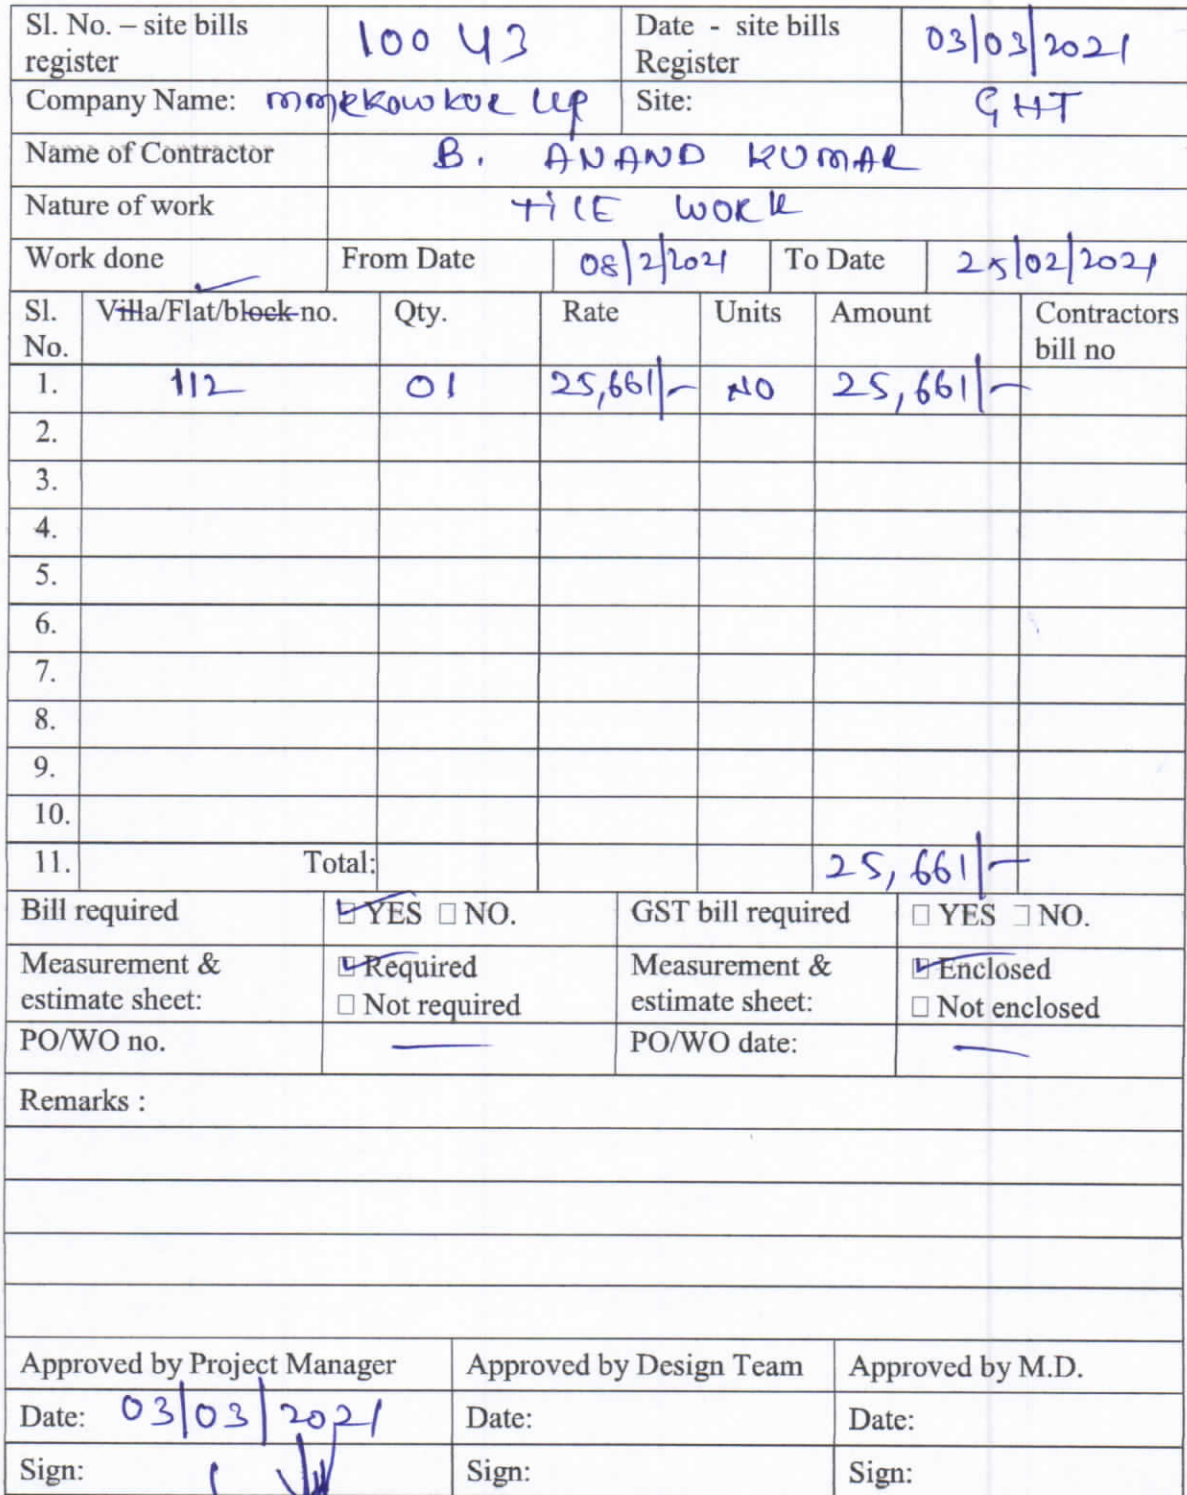 Sl. No. – site bills register 10043 Date - site bills Register 03/03/2021
Company Name: LLP Site: GHT
Name of Contractor B. ANAND KUMAR
Nature of work TILE WORK
Work done From Date 08/2/2021 To Date 25/02/2021
Sl. No. Villa/Flat/block no. Qty. Rate Units Amount Contractors bill no
1. 112 01 25,661/- NO 25,661/-
2.
3.
4.
5.
6.
7.
8.
9.
10.
11. Total: 25,661/-
Bill required YES NO. GST bill required YES NO.
Measurement & estimate sheet: Required Not required Measurement & estimate sheet: Enclosed Not enclosed
PO/WO no. — PO/WO date: —
Remarks :
Approved by Project Manager Approved by Design Team Approved by M.D.
Date: 03/03/2021 Date: Date:
Sign: Sign: Sign: